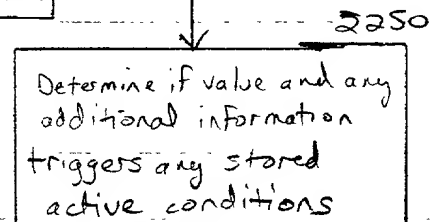 2250
Determine if value and any
additional information
triggers any stored
active conditions